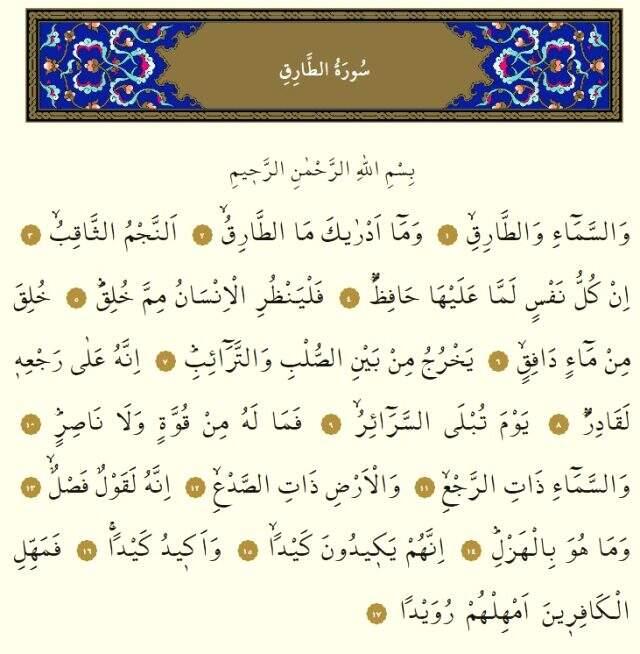 سُورَةُ الطَّارِقِ
بِسْمِ اللهِ الرَّحْمٰنِ الرَّحٖيمِ
وَالسَّمَٓاءِ وَالطَّارِقِۙ ١ وَمَٓا اَدْرٰيكَ مَا الطَّارِقُۙ ٢ اَلنَّجْمُ الثَّاقِبُۙ ٣
اِنْ كُلُّ نَفْسٍ لَمَّا عَلَيْهَا حَافِظٌؕ ٤ فَلْيَنْظُرِ الْاِنْسَانُ مِمَّ خُلِقَؕ ٥ خُلِقَ
مِنْ مَٓاءٍ دَافِقٍۙ ٦ يَخْرُجُ مِنْ بَيْنِ الصُّلْبِ وَالتَّرَٓائِبِؕ ٧ اِنَّهُ عَلٰى رَجْعِهٖ
لَقَادِرٌؕ ٨ يَوْمَ تُبْلَى السَّرَٓائِرُۙ ٩ فَمَا لَهُ مِنْ قُوَّةٍ وَلَا نَاصِرٍؕ ١٠
وَالسَّمَٓاءِ ذَاتِ الرَّجْعِۙ ١١ وَالْاَرْضِ ذَاتِ الصَّدْعِۙ ١٢ اِنَّهُ لَقَوْلٌ فَصْلٌۙ ١٣
وَمَا هُوَ بِالْهَزْلِؕ ١٤ اِنَّهُمْ يَكٖيدُونَ كَيْدًاۙ ١٥ وَاَكٖيدُ كَيْدًاۚ ١٦ فَمَهِّلِ
الْكَافِرٖينَ اَمْهِلْهُمْ رُوَيْدًا ١٧